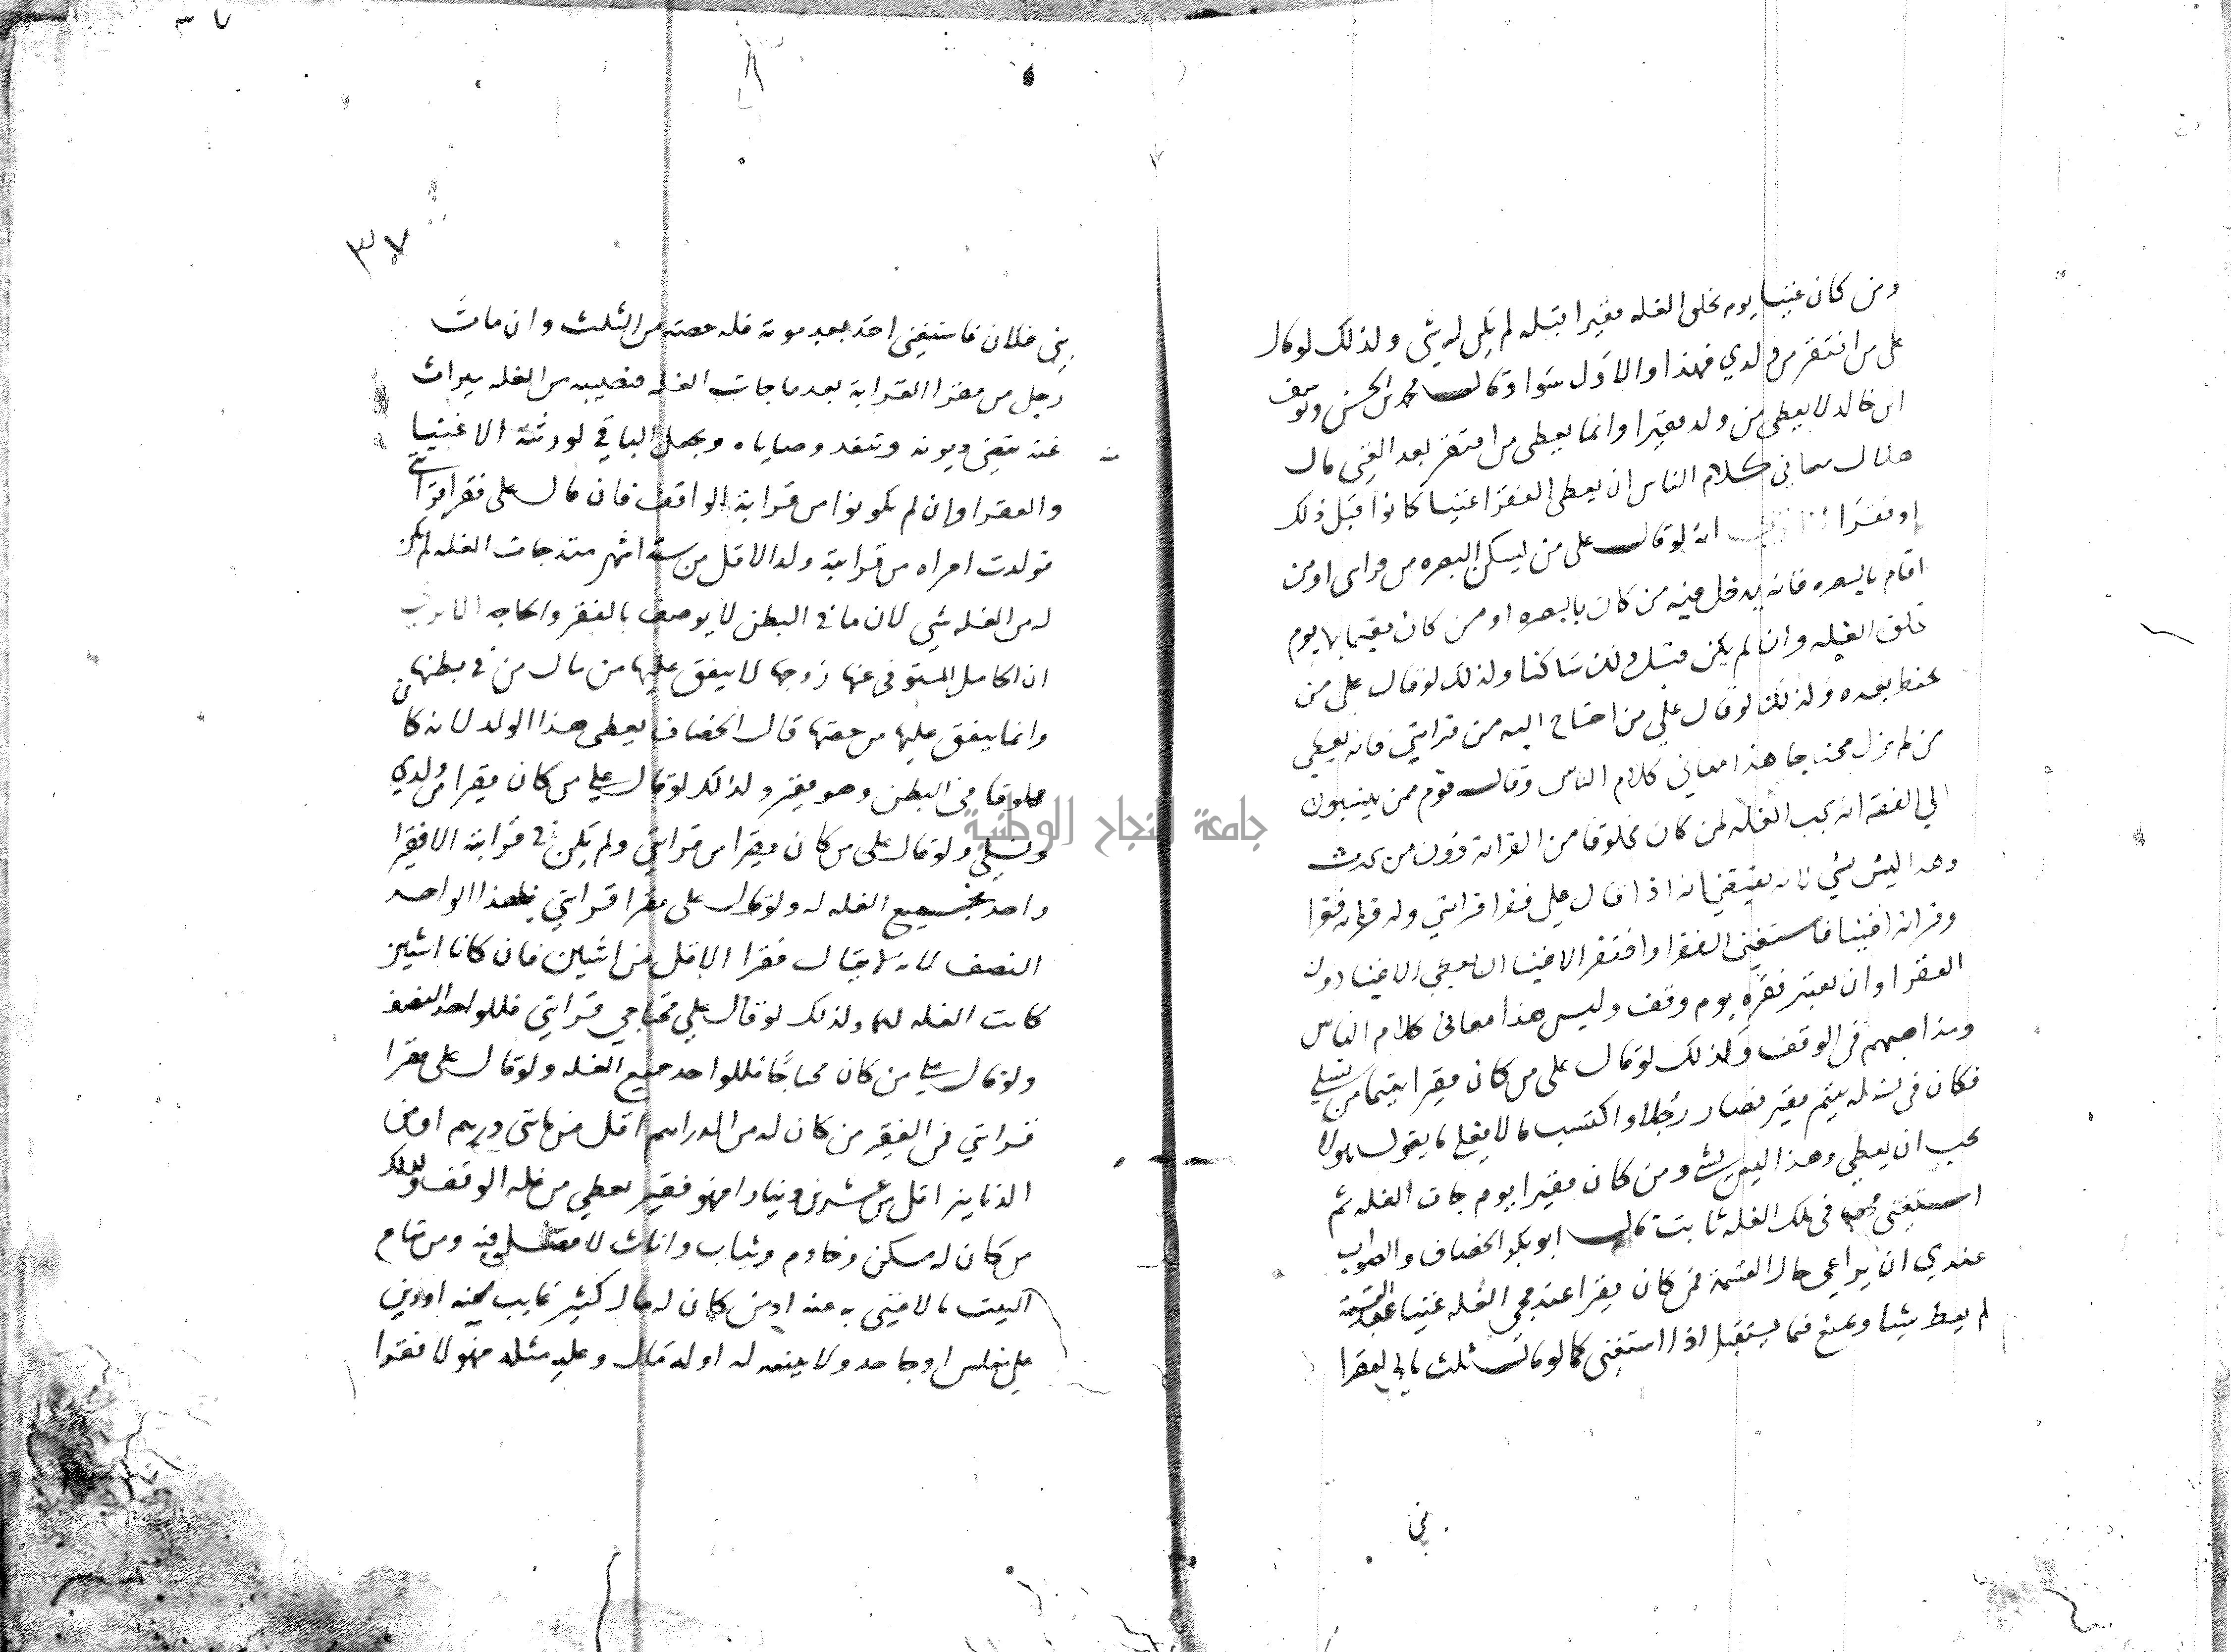 ومن كان غنيا يوم تخلق الغله فقيرا قبله لم يكن له شي ولذلك لو قال
على من افتقر من ولدي فهذا والاول سوا وقال محمد بن الحسن ويوسف
ابن خالد لا يعطى من ولد فقيرا وانما يعطى من افتقر بعد الغنى قال
هلال معاني كلام الناس ان يعطى الفقرا اغنيا كانوا قبل ذلك
او فقرا انه لو قال على من يسكن البصره من قرابتي او من
اقام بالبصره فانه يدخل فيه من كان بالبصره او من كان مقيما بها يوم
تخلق الغله وان لم يكن قبل ذلك ساكنا ولذلك لو قال على من
بعده ولذلك لو قال على من احتاج اليه من قرابتي فانه يعطي
من لم يزل محتاجا هذا معاني كلام الناس وقال قوم ممن ينسبون
الى الفقه انه يجب الغله لمن كان مخلوقا من القرابه دون من يحدث
وهذا ليس بشي لانه اذا قال على فقرا قرابتي وله قرابه فقرا
وقرابه اغنيا فاستغنى الفقرا وافتقر الاغنيا ان يعطي الاغنيا دون
الفقرا وان يعتبر فقره يوم وقف وليس هذا معاني كلام الناس
ومذاهبهم في الوقف ولذلك لو قال على من كان فقيرا يتيما من نسلي
فكان في نسله يتيم فقير فصار رجلا واكتسب مالا يقول
يجب ان يعطي وهذا ليس بشي ومن كان فقيرا يوم جات الغله ثم
استغنى في تلك الغله ثابت قال ابو بكر الخصاف والصواب
عندي ان يراعي حال القسمة فمن كان فقيرا عند مجي الغله غنيا عند القسمة
لم يعط شيا ويمنع فيما يستقبل اذا استغنى كما لو قال ثلث مالي لفقرا
بني
٣٧
بني فلان فاستغنى احد بعد موته فله حصته من الثلث وان مات
رجل من فقرا القرابة بعد ما جات الغله فنصيبه من الغله ميراث
عنه يقضي ديونه وتنفد وصاياه ويجعل الباقي لورثته الاغنيا
والفقرا وان لم يكونوا من قرابة الواقف فان قال على فقرا قرابتي
فولدت امراه من قرابته ولدا لاقل من سته اشهر منذ جات الغله لم يكن
له من الغله شي لان ما في البطن لا يوصف بالفقر والحاجه
ان الحامل المتوفى عنها زوجها لا ينفق عليها من مال من في بطنها
وانما ينفق عليها من حقها قال الخصاف يعطى هذا الولد لانه كان
مخلوقا في البطن وهو فقير ولذلك لو قال على من كان فقيرا من ولدي
ونسلي ولو قال على من كان فقيرا من قرابتي ولم يكن في قرابته الا فقيرا
واحد فجميع الغله له ولو قال على فقرا قرابتي فلهذا الواحد
النصف لانه لا يقال فقرا الاقل من اثنين فان كانا اثنين
كانت الغله لهما ولذلك لو قال على محتاجي قرابتي فللواحد النصف
ولو قال على من كان محتاجا فللواحد جميع الغله ولو قال على فقرا
قرابتي فن الفقير من كان له من الدراهم اقل من مائتي درهم او من
الدنانير اقل من عشرين دينارا فهو فقير يعطي من غله الوقف ولذلك
من كان له مسكن وخادم وثياب واثاث لا فيه ومن متاع
البيت ما لا غنى به عنه او من كان له مال كثير غايب عنه او دين
على مفلس او جاحد ولا بينه له او له مال وعليه مثله فهولا فقرا
جامعة النجاح الوطنية